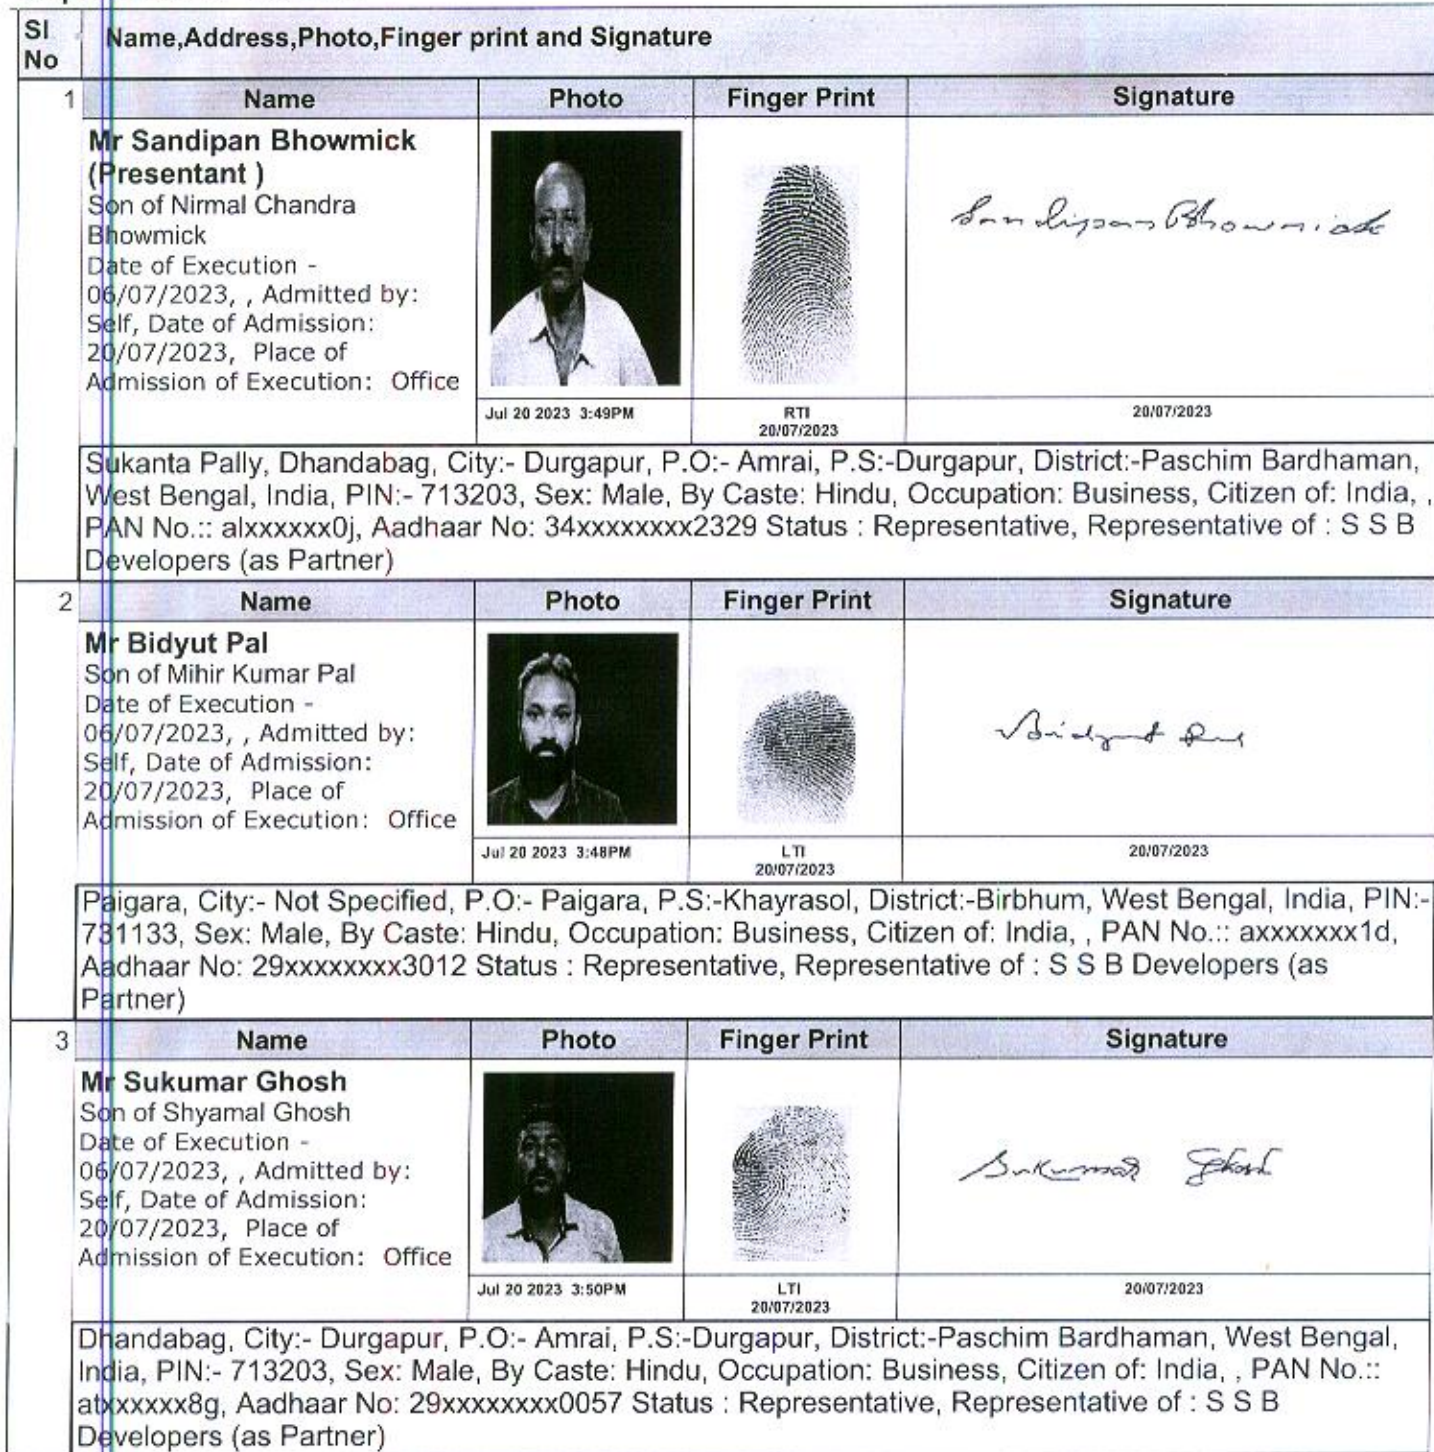 Sl No
Name,Address,Photo,Finger print and Signature
1
Name Photo Finger Print Signature
Mr Sandipan Bhowmick
(Presentant )
Son of Nirmal Chandra
Bhowmick
Date of Execution -
06/07/2023, , Admitted by:
Self, Date of Admission:
20/07/2023, Place of
Admission of Execution: Office
Sandipan Bhowmick
Jul 20 2023 3:49PM
RTI
20/07/2023
20/07/2023
Sukanta Pally, Dhandabag, City:- Durgapur, P.O:- Amrai, P.S:-Durgapur, District:-Paschim Bardhaman,
West Bengal, India, PIN:- 713203, Sex: Male, By Caste: Hindu, Occupation: Business, Citizen of: India, ,
PAN No.:: alxxxxxx0j, Aadhaar No: 34xxxxxxxx2329 Status : Representative, Representative of : S S B
Developers (as Partner)
2
Name Photo Finger Print Signature
Mr Bidyut Pal
Son of Mihir Kumar Pal
Date of Execution -
06/07/2023, , Admitted by:
Self, Date of Admission:
20/07/2023, Place of
Admission of Execution: Office
Bidyut Pal
Jul 20 2023 3:48PM
LTI
20/07/2023
20/07/2023
Paigara, City:- Not Specified, P.O:- Paigara, P.S:-Khayrasol, District:-Birbhum, West Bengal, India, PIN:-
731133, Sex: Male, By Caste: Hindu, Occupation: Business, Citizen of: India, , PAN No.:: axxxxxxx1d,
Aadhaar No: 29xxxxxxxx3012 Status : Representative, Representative of : S S B Developers (as
Partner)
3
Name Photo Finger Print Signature
Mr Sukumar Ghosh
Son of Shyamal Ghosh
Date of Execution -
06/07/2023, , Admitted by:
Self, Date of Admission:
20/07/2023, Place of
Admission of Execution: Office
Sukumar Ghosh
Jul 20 2023 3:50PM
LTI
20/07/2023
20/07/2023
Dhandabag, City:- Durgapur, P.O:- Amrai, P.S:-Durgapur, District:-Paschim Bardhaman, West Bengal,
India, PIN:- 713203, Sex: Male, By Caste: Hindu, Occupation: Business, Citizen of: India, , PAN No.::
atxxxxxx8g, Aadhaar No: 29xxxxxxxx0057 Status : Representative, Representative of : S S B
Developers (as Partner)